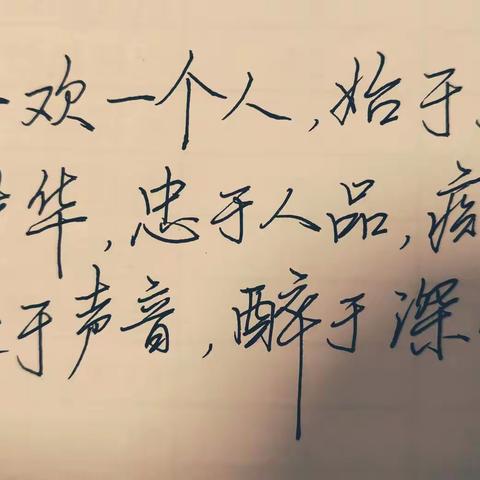 欢一个人，始于
华，忠于人品，
于声音，醉于深